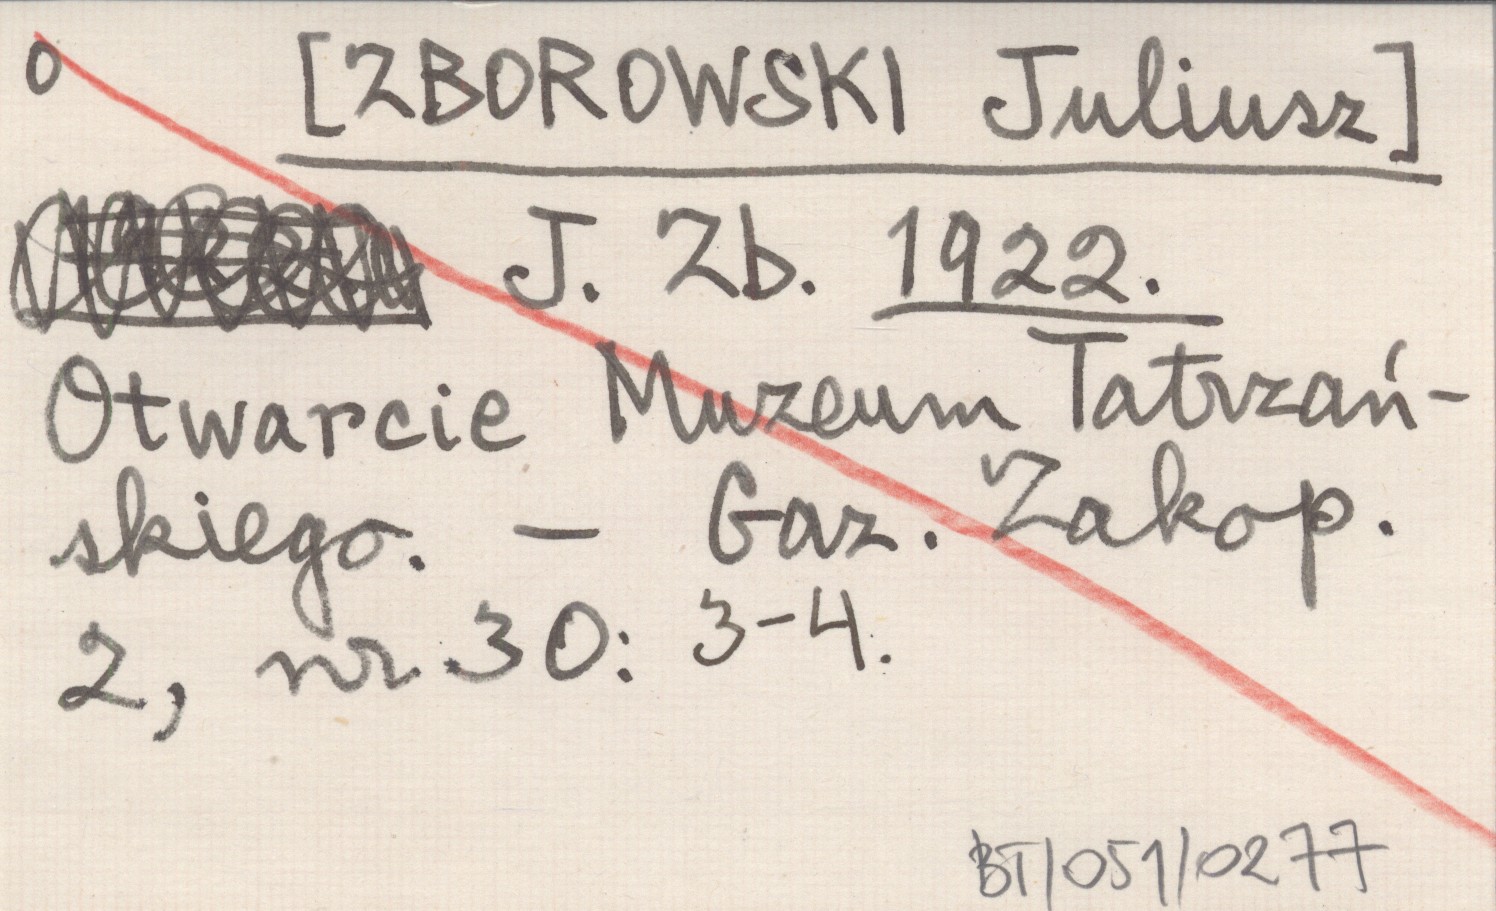 o [ZBOROWSKI Juliusz]
J. Zb. 1922.
Otwarcie Muzeum Tatrzań-
skiego. — Gaz. Zakop.
2, nr 30: 3-4.
BT/051/0277